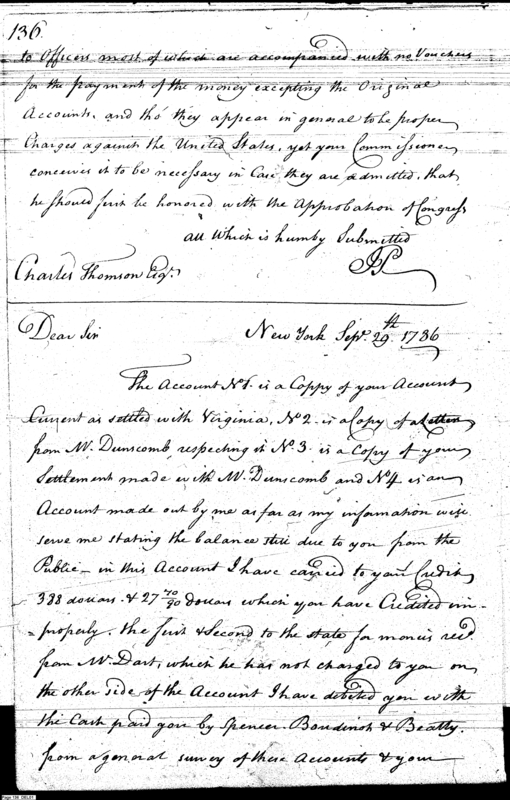 136
to Officers most of which are accompanied with no Vouchers
for the payment of the money excepting the Original
Accounts, and tho' they appear in general to be proper
Charges against the United States, yet your Commissioner
conceives it to be necessary in Case they are admitted, that
he should first be honored with the Approbation of Congress
all which is humby Submitted
JP
Charles Thomson Esqr.
Dear Sir New York Sepr. 29th 1786
The Account No 1. is a Coppy of your Account
Current as settled with Virginia, No 2 is a Copy of a Letter
from Mr. Dunscomb, respecting it No 3 is a Copy of your
Settlement made with Mr. Dunscomb and No 4 is an
Account made out by me as far as my information will
serve me stating the balance still due to you from the
Public — in this Account I have carried to your Credit
388 dollars & 27 70/90 Dollars which you have Credited im-
-properly. the first & Second to the state for monies recd
from Mr. Dart, which he has not charged to you on
the other side of the Account I have debited you with
the Cash paid you by Spencer Boudinot & Beatty.
from a general survey of these Accounts & your